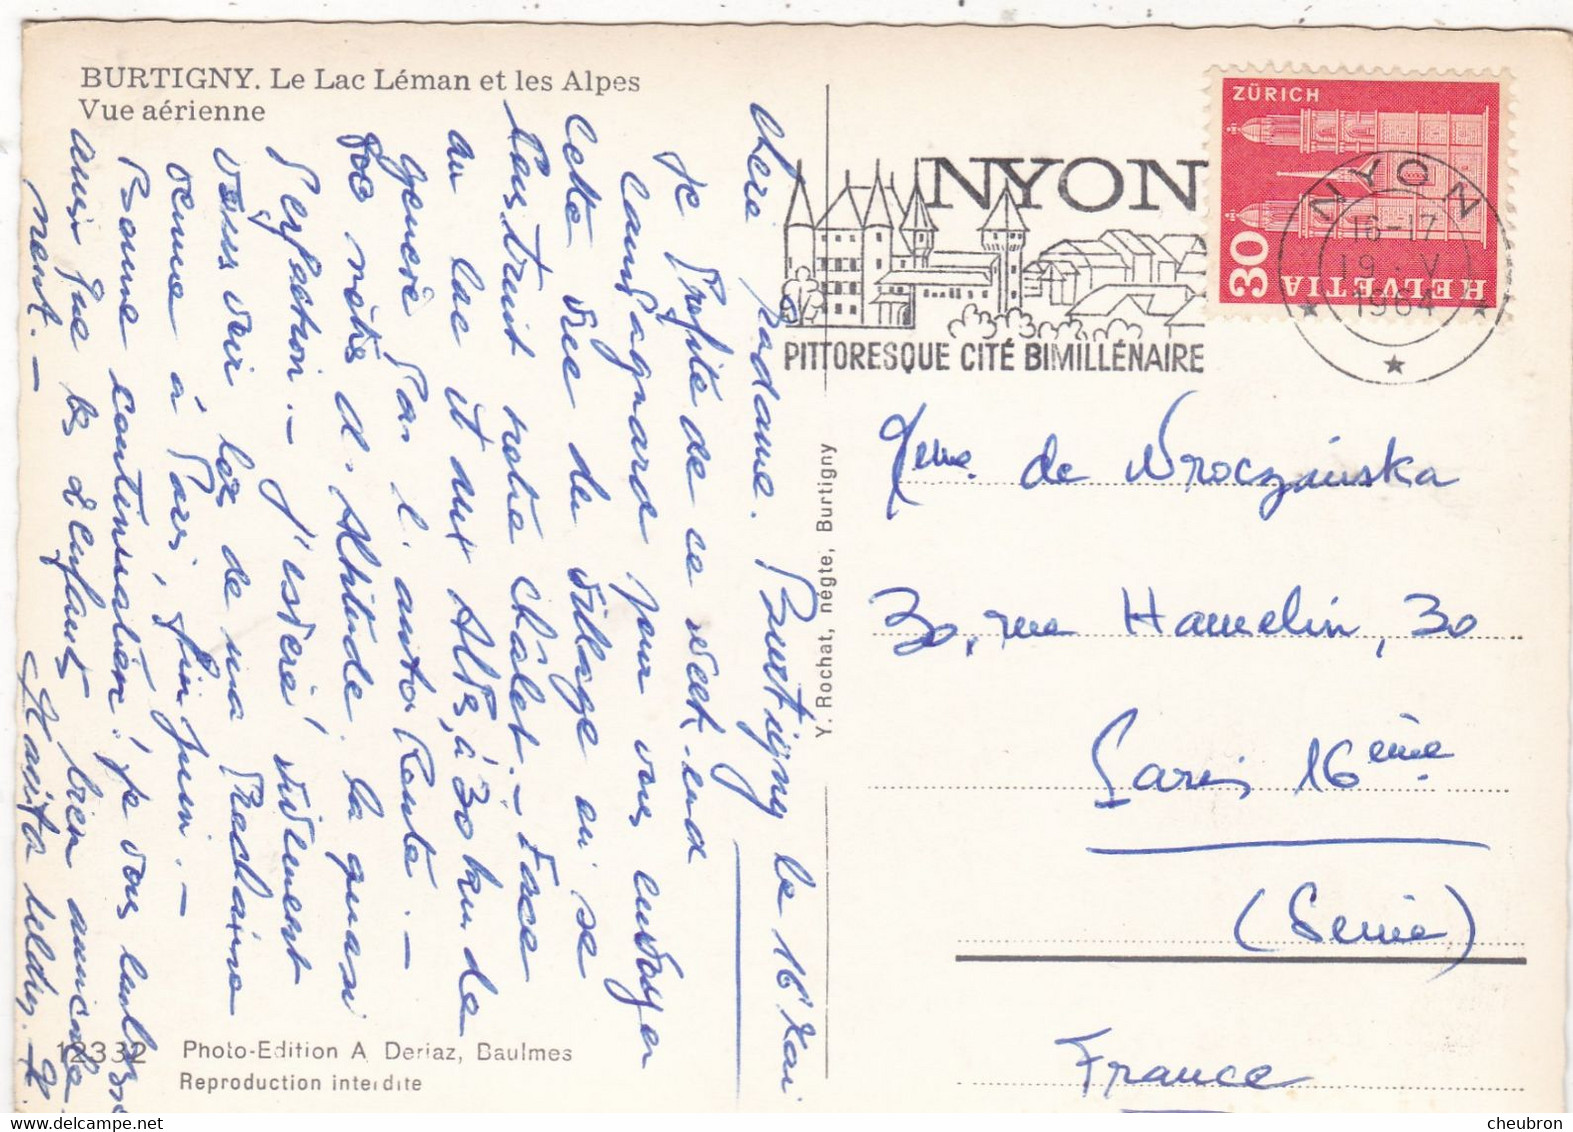 BURTIGNY. Le Lac Léman et les Alpes
Vue aérienne
chère Madame. Burtigny le 16 Mai
Je profite de ce week-end
campagnard pour vous envoyer
cette vue du village où se
construit notre châlet. — Face
au lac et aux Alpes, à 30 km de
Genève par l'auto Route. —
700 mètr. d'Altitude. la quasi
perfection. — J'espère vivement
vous voir lors de ma prochaine
venue à Paris, fin juin. —
Bonne continuation! je vous embrasse
ainsi que les enfants bien amicale
ment. —
NYON
PITTORESQUE CITÉ BIMILLÉNAIRE
ZÜRICH
30
HELVETIA
NYON
16-17
19. V
1964
Mme. de Wroczinska
30, rue Hamelin, 30
Paris 16ème
(Seine)
France
Y. Rochat, négte, Burtigny
12332 Photo-Edition A. Deriaz, Baulmes
Reproduction interdite
cheubron